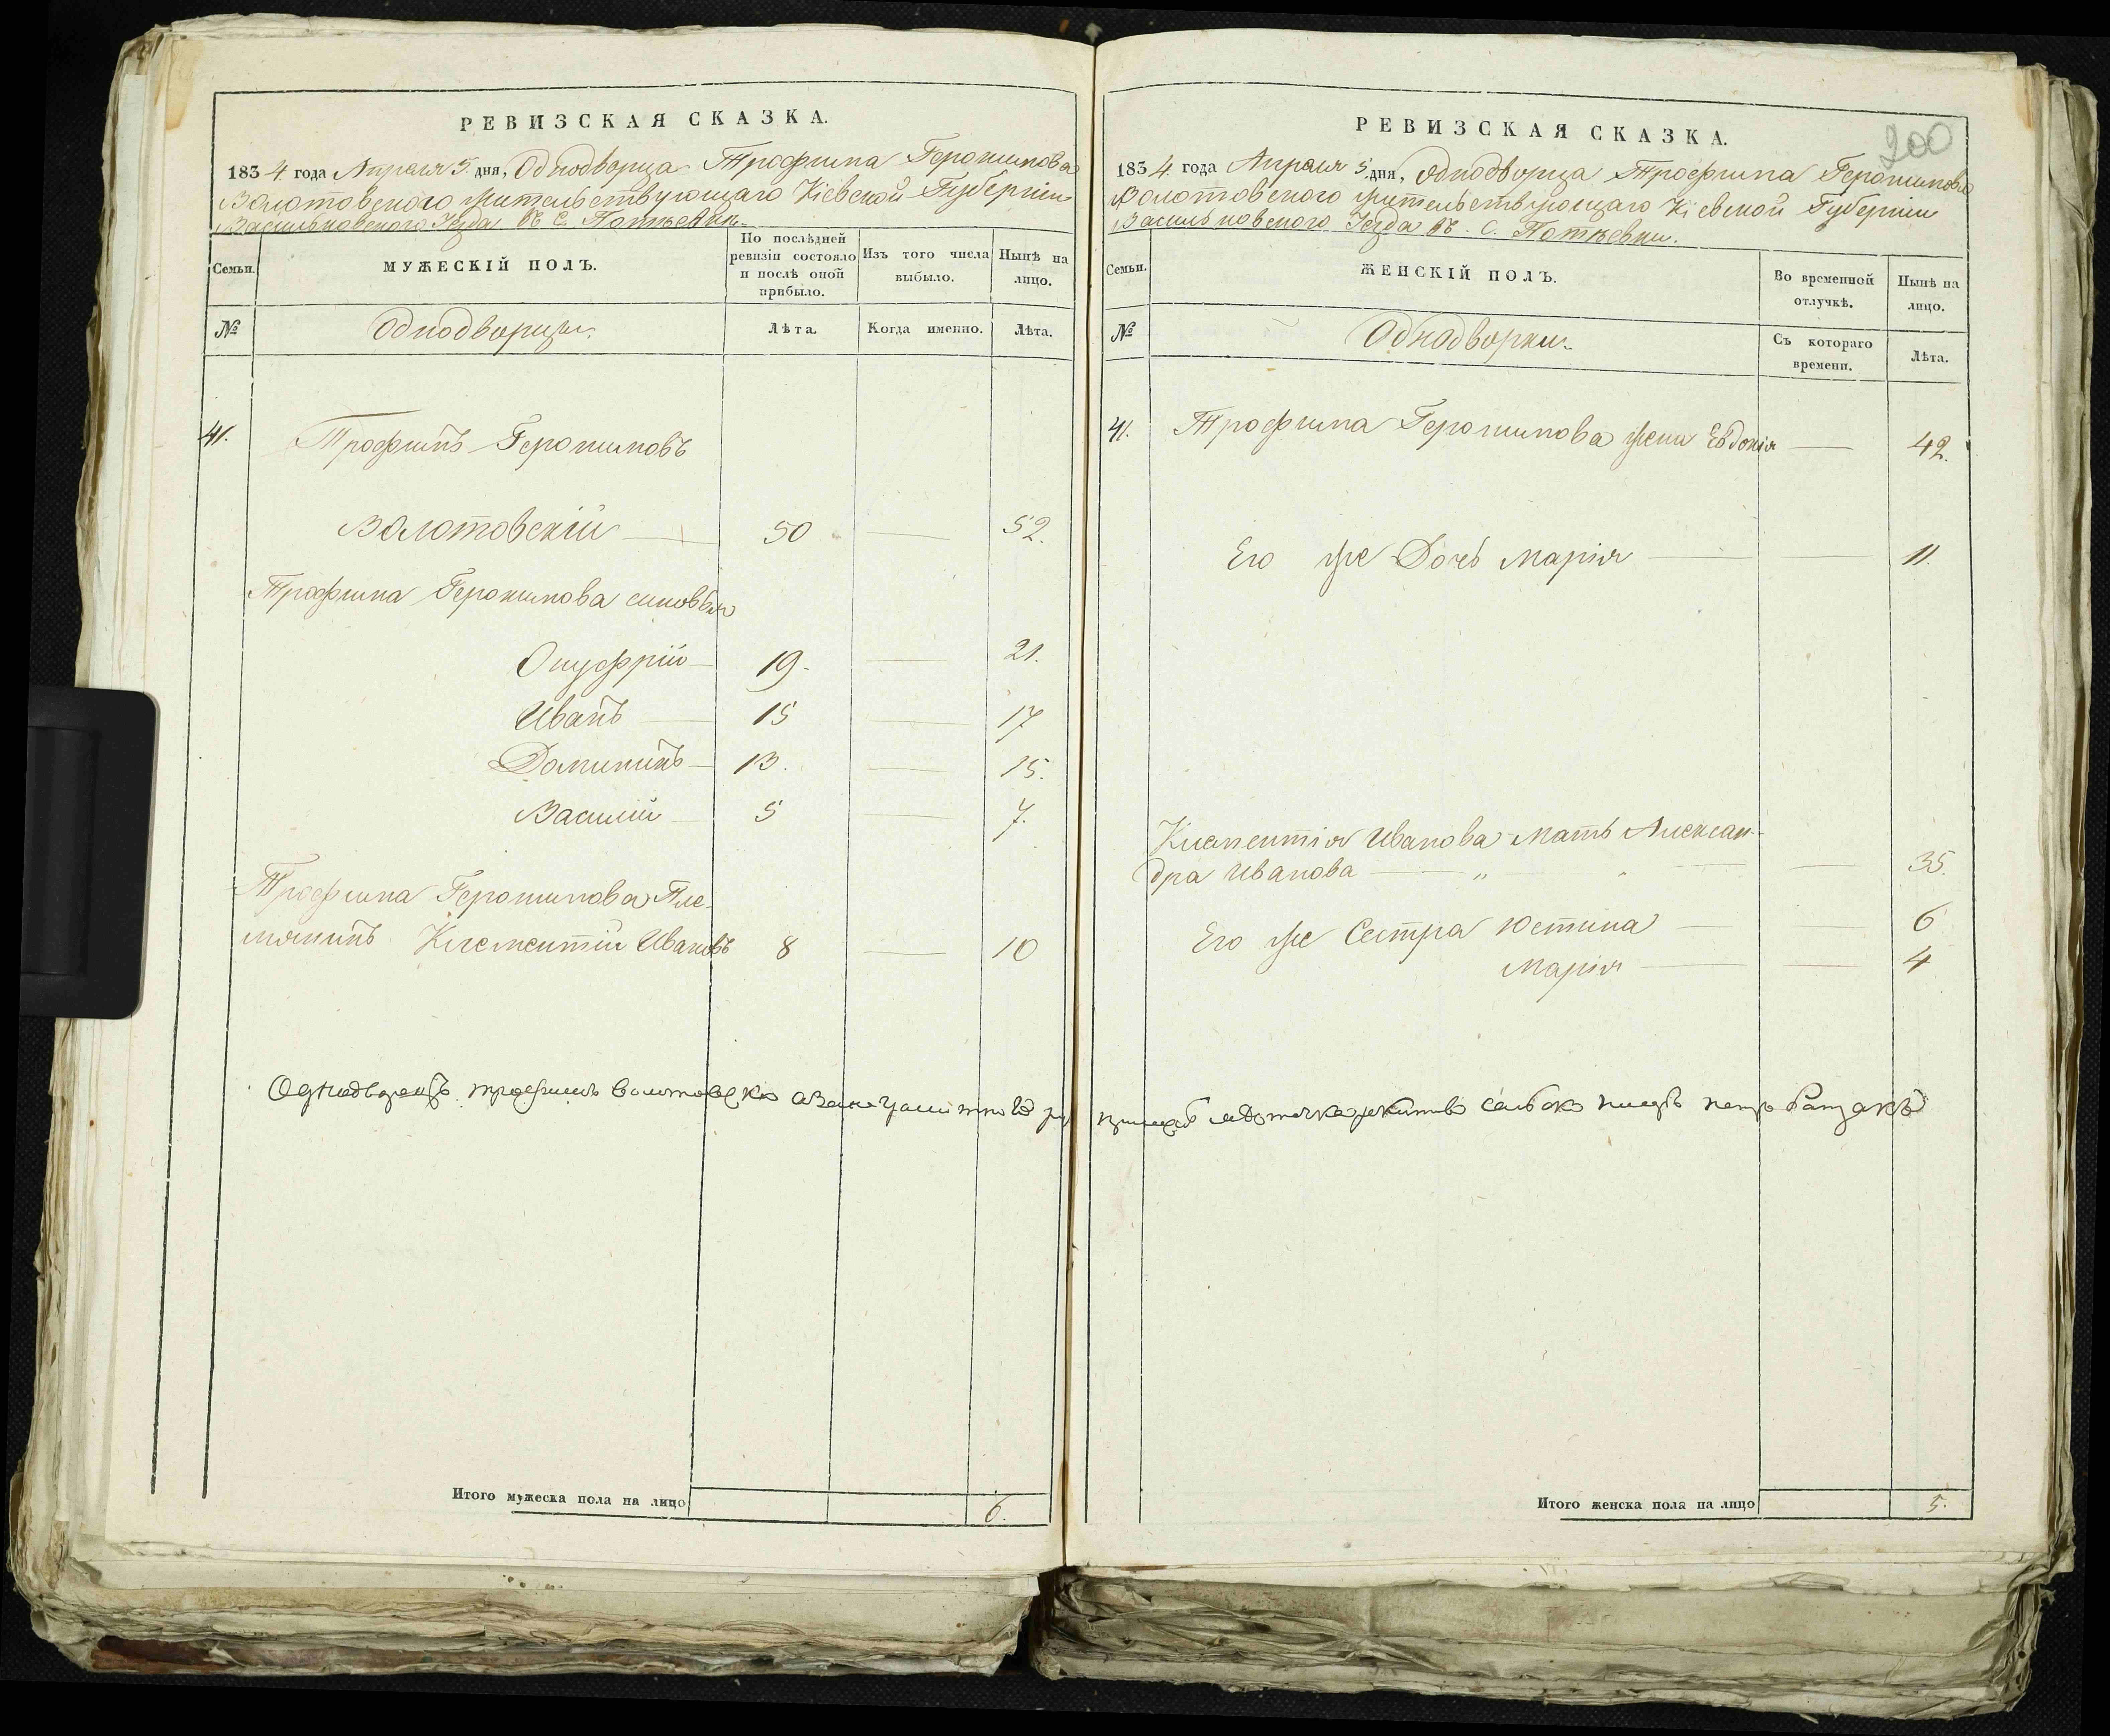 РЕВИЗСКАЯ СКАЗКА.
1834. года Апреля 5. дня, Однодворца Трофима Геронимова
Волотовского жительствующаго Кіевской Губерніи
Васильковского Уезда въ С.
Семьи.
МУЖЕСКІЙ ПОЛЪ.
По послѣдней ревизіи состояло и послѣ оной прибыло.
Изъ того числа выбыло.
Нынѣ на лицо.
№
Однодворцы.
Лѣта.
Когда именно.
Лѣта.
41.
Трофимъ Геронимовъ
Волотовскій — 50 — 52.
Трофима Геронимова сыновья
Онуфрій — 19. — 21.
Иванъ — 15 — 17
Доминикъ — 13. — 15.
Василій — 5 — 7.
Трофима Геронимова Пле-
мяникъ Климентій Ивановъ 8 — 10
Однодворецъ трофимъ волотовски
Итого мужеска пола на лицо 6.
200
РЕВИЗСКАЯ СКАЗКА.
1834. года Апреля 5 дня, Однодворца Трофима Геронимова
Волотовского жительствующаго Кіевской Губерніи
Васильковского Уезда въ. С.
Семьи.
ЖЕНСКІЙ ПОЛЪ.
Во временной отлучкѣ.
Нынѣ на лицо.
№
Однодворки.
Съ котораго времени.
Лѣта.
41.
Трофима Геронимова жена Евдокія — 42.
Его же Дочь Марія — — 11.
Климентія Иванова Мать Алексан-
дра Иванова — „ — — 35.
Его же Сестра Юстина — 6
Марія — — 4
Итого женска пола на лицо 5.